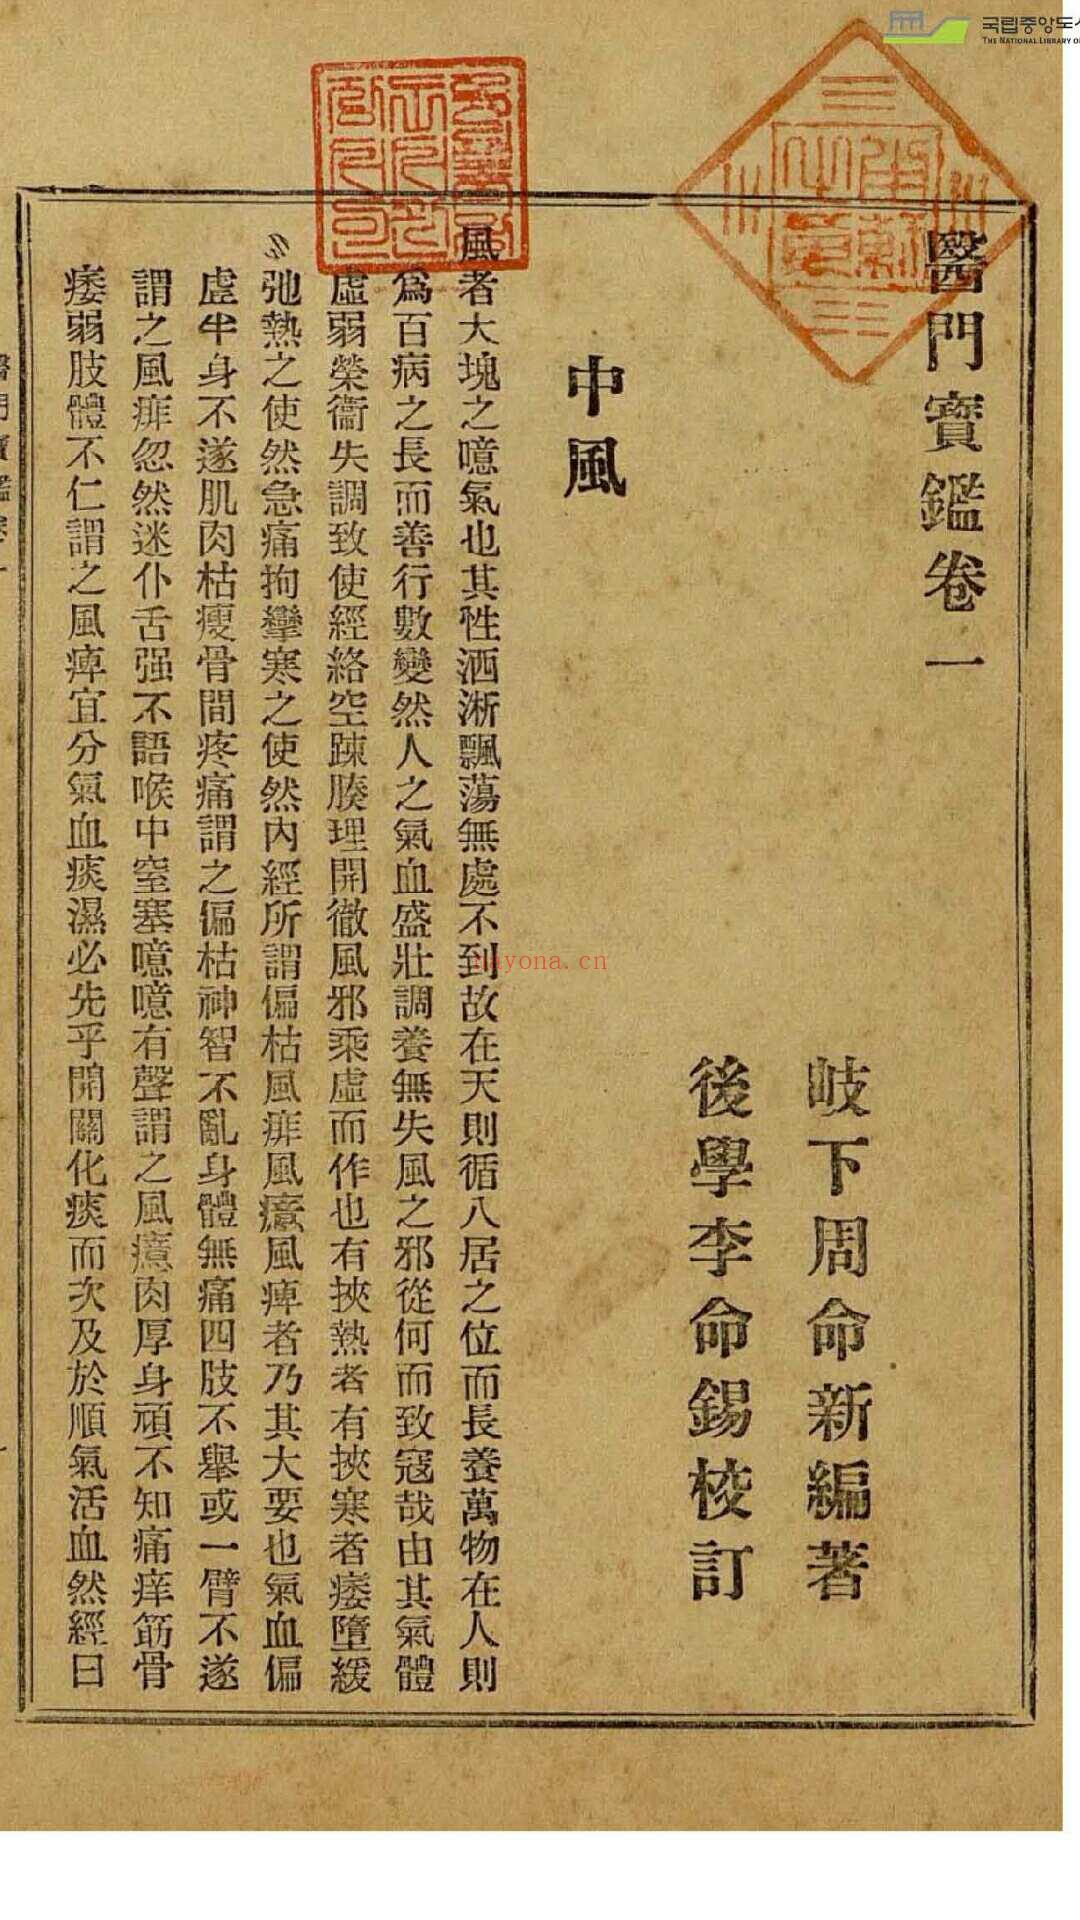 국립중앙도서
THE NATIONAL LIBRARY OF
醫門寶鑑卷一
岐下周命新編著
後學李命錫校訂
中風
風者大塊之噫氣也其性洒淅飄蕩無處不到故在天則循八居之位而長養萬物在人則
爲百病之長而善行數變然人之氣血盛壯調養無失風之邪從何而致寇哉由其氣體
虛弱榮衞失調致使經絡空踈腠理開徹風邪乘虛而作也有挾熱者有挾寒者痿墮緩
弛熱之使然急痛拘攣寒之使然內經所謂偏枯風痱風癔風痺者乃其大要也氣血偏
虛半身不遂肌肉枯瘦骨間疼痛謂之偏枯神智不亂身體無痛四肢不舉或一臂不遂
謂之風痱忽然迷仆舌强不語喉中窒塞噫噫有聲謂之風癔肉厚身頑不知痛痒筋骨
痿弱肢體不仁謂之風痺宜分氣血痰濕必先乎開關化痰而次及於順氣活血然經曰
醫門寶鑑卷一
一
nayona.cn